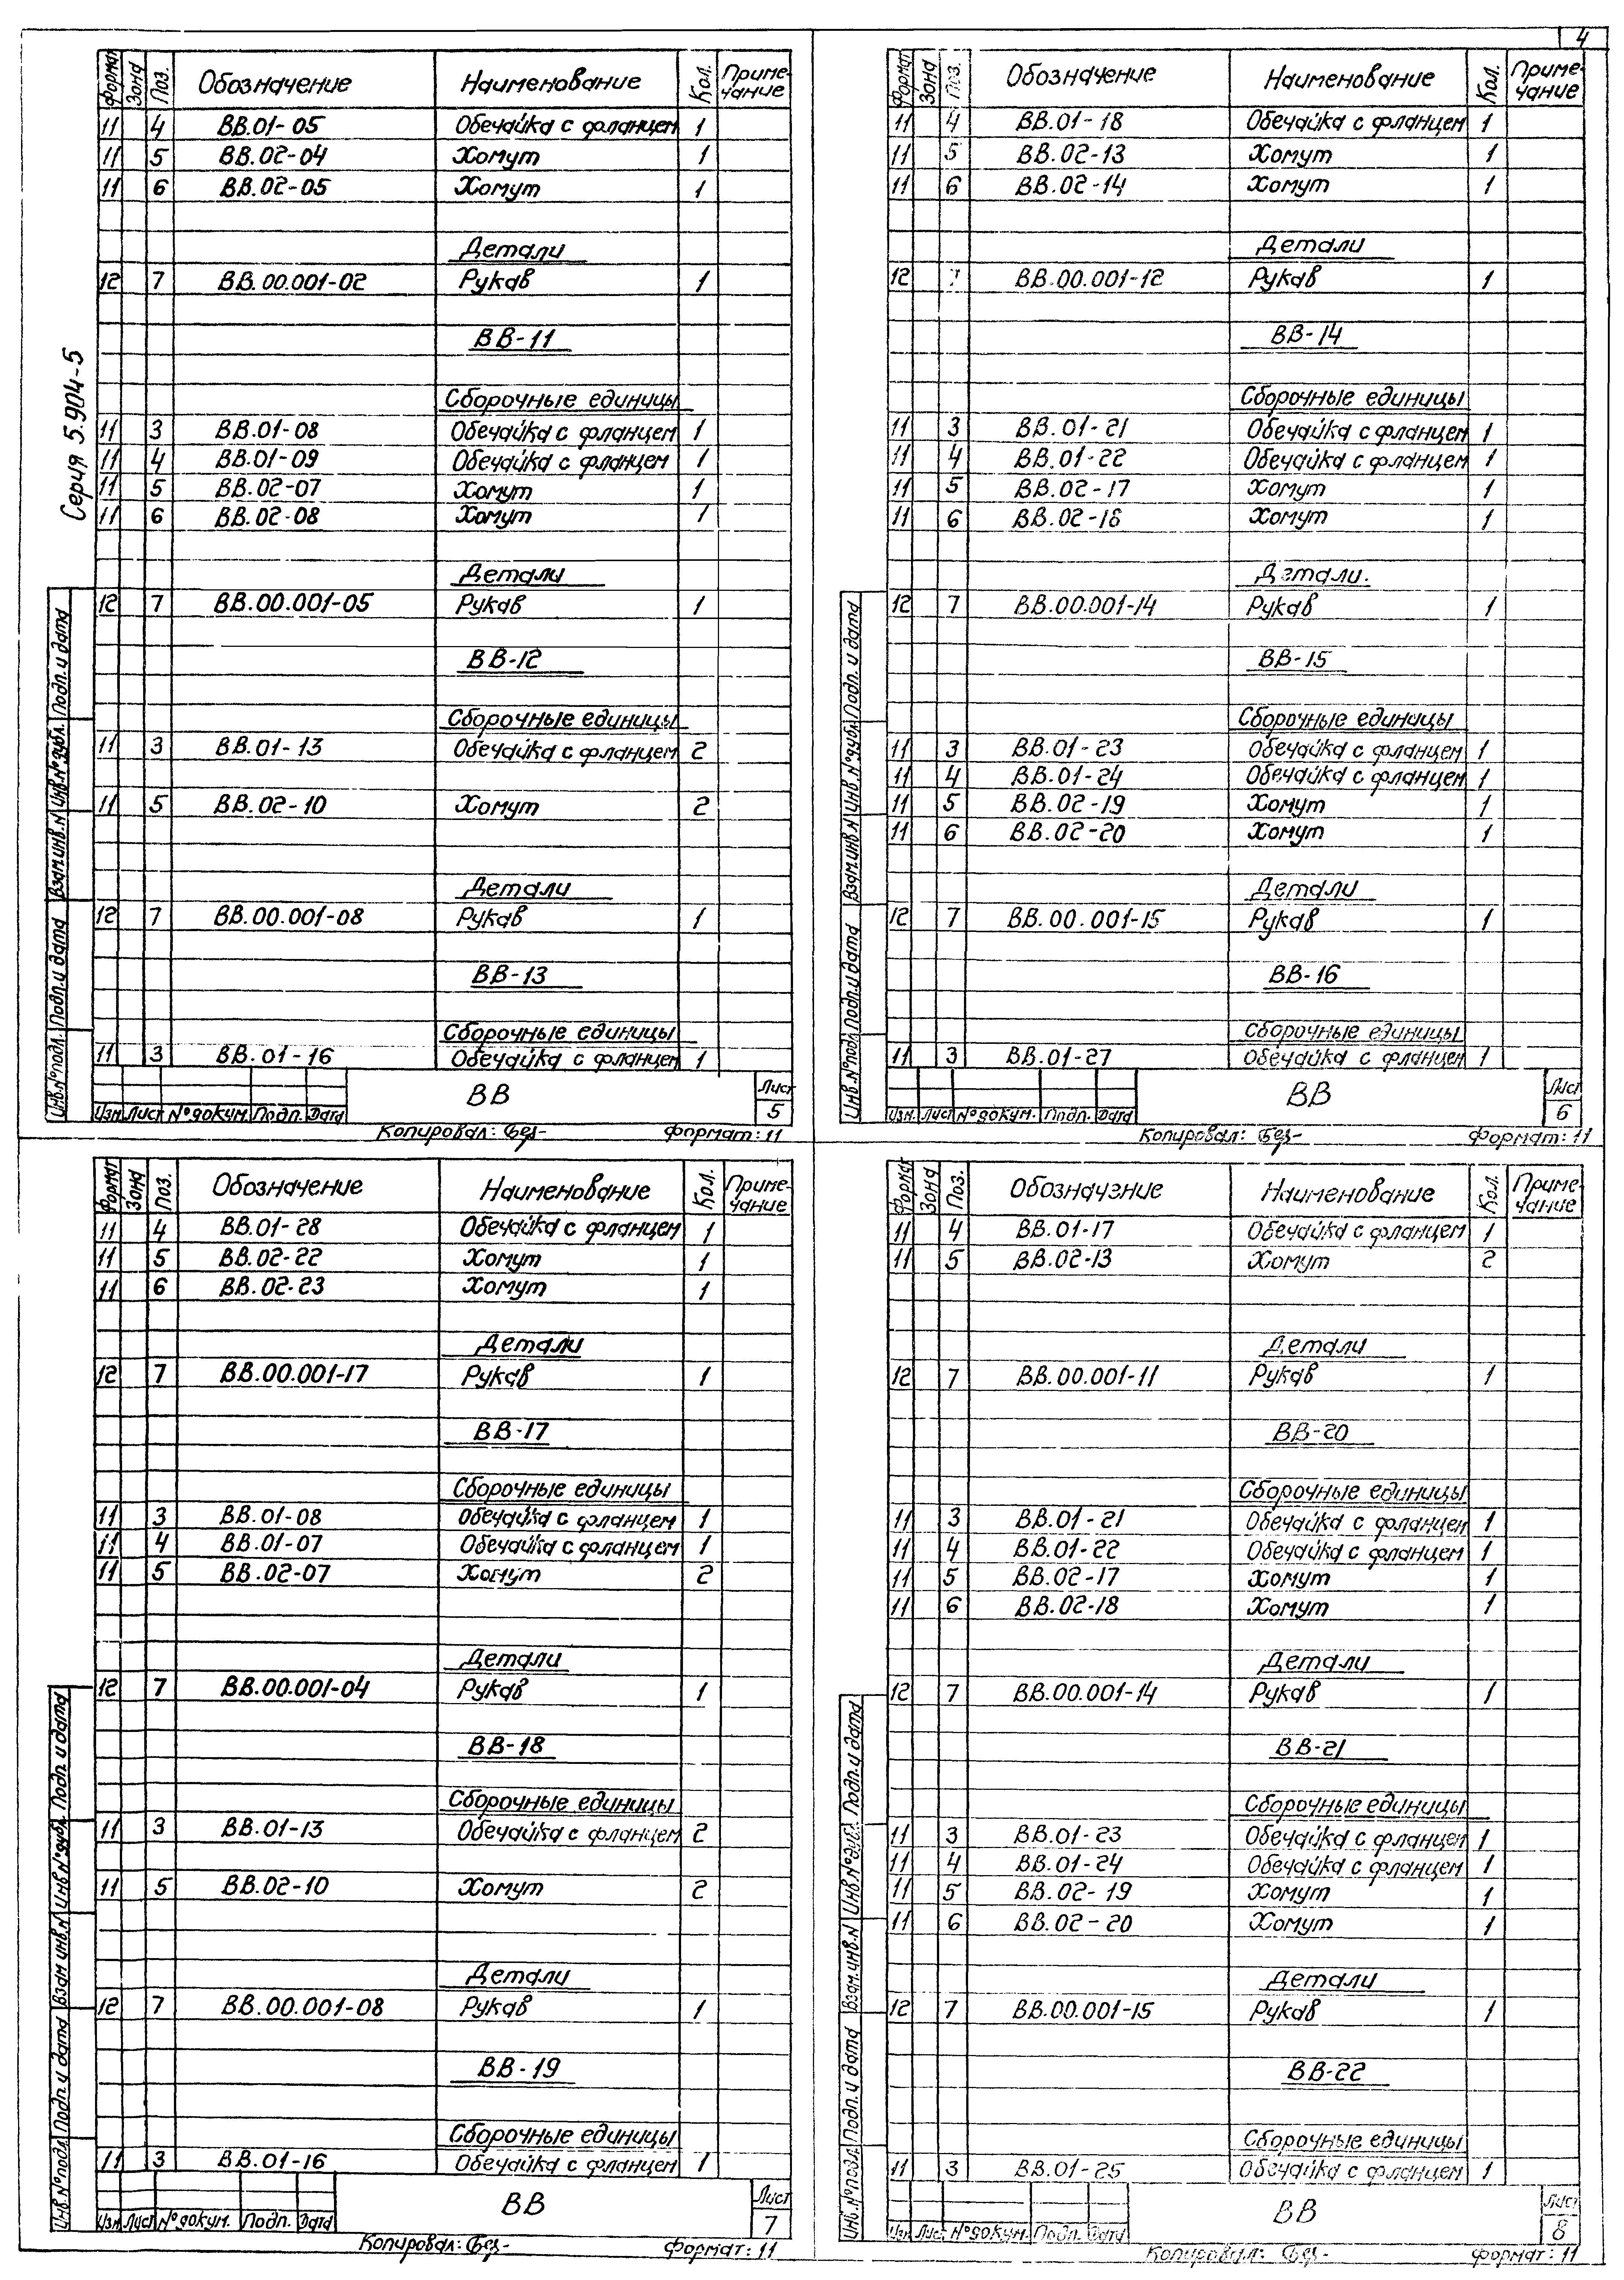 4
Серия 5.904-5
Формат Зона Поз. Обозначение Наименование Кол. Примечание
11 4 ВВ.01-05 Обечайка с фланцем 1
11 5 ВВ.02-04 Хомут 1
11 6 ВВ.02-05 Хомут 1
Детали
12 7 ВВ.00.001-02 Рукав 1
ВВ-11
Сборочные единицы
11 3 ВВ.01-08 Обечайка с фланцем 1
11 4 ВВ.01-09 Обечайка с фланцем 1
11 5 ВВ.02-07 Хомут 1
11 6 ВВ.02-08 Хомут 1
Детали
12 7 ВВ.00.001-05 Рукав 1
ВВ-12
Сборочные единицы
11 3 ВВ.01-13 Обечайка с фланцем 2
11 5 ВВ.02-10 Хомут 2
Детали
12 7 ВВ.00.001-08 Рукав 1
ВВ-13
Сборочные единицы
11 3 ВВ.01-16 Обечайка с фланцем 1
Инв.№подл. Подп.и дата Взам.инв.№ Инв.№дубл. Подп.и дата
Изм. Лист №докум. Подп. Дата
ВВ
Лист
5
Копировал: Без- Формат: 11
Формат Зона Поз. Обозначение Наименование Кол. Примечание
11 4 ВВ.01-18 Обечайка с фланцем 1
11 5 ВВ.02-13 Хомут 1
11 6 ВВ.02-14 Хомут 1
Детали
12 7 ВВ.00.001-12 Рукав 1
ВВ-14
Сборочные единицы
11 3 ВВ.01-21 Обечайка с фланцем 1
11 4 ВВ.01-22 Обечайка с фланцем 1
11 5 ВВ.02-17 Хомут 1
11 6 ВВ.02-18 Хомут 1
Детали.
12 7 ВВ.00.001-14 Рукав 1
ВВ-15
Сборочные единицы
11 3 ВВ.01-23 Обечайка с фланцем 1
11 4 ВВ.01-24 Обечайка с фланцем 1
11 5 ВВ.02-19 Хомут 1
11 6 ВВ.02-20 Хомут 1
Детали
12 7 ВВ.00.001-15 Рукав 1
ВВ-16
Сборочные единицы
11 3 ВВ.01-27 Обечайка с фланцем 1
Инв.№подл. Подп.и дата Взам.инв.№ Инв.№дубл. Подп.и дата
Изм. Лист №докум. Подп. Дата
ВВ
Лист
6
Копировал: Без- Формат: 11
Формат Зона Поз. Обозначение Наименование Кол. Примечание
11 4 ВВ.01-28 Обечайка с фланцем 1
11 5 ВВ.02-22 Хомут 1
11 6 ВВ.02-23 Хомут 1
Детали
12 7 ВВ.00.001-17 Рукав 1
ВВ-17
Сборочные единицы
11 3 ВВ.01-08 Обечайка с фланцем 1
11 4 ВВ.01-07 Обечайка с фланцем 1
11 5 ВВ.02-07 Хомут 2
Детали
12 7 ВВ.00.001-04 Рукав 1
ВВ-18
Сборочные единицы
11 3 ВВ.01-13 Обечайка с фланцем 2
11 5 ВВ.02-10 Хомут 2
Детали
12 7 ВВ.00.001-08 Рукав 1
ВВ-19
Сборочные единицы
11 3 ВВ.01-16 Обечайка с фланцем 1
Инв.№подл. Подп.и дата Взам.инв.№ Инв.№дубл. Подп.и дата
Изм. Лист №докум. Подп. Дата
ВВ
Лист
7
Копировал: Без- Формат: 11
Формат Зона Поз. Обозначение Наименование Кол. Примечание
11 4 ВВ.01-17 Обечайка с фланцем 1
11 5 ВВ.02-13 Хомут 2
Детали
12 7 ВВ.00.001-11 Рукав 1
ВВ-20
Сборочные единицы
11 3 ВВ.01-21 Обечайка с фланцем 1
11 4 ВВ.01-22 Обечайка с фланцем 1
11 5 ВВ.02-17 Хомут 1
11 6 ВВ.02-18 Хомут 1
Детали
12 7 ВВ.00.001-14 Рукав 1
ВВ-21
Сборочные единицы
11 3 ВВ.01-23 Обечайка с фланцем 1
11 4 ВВ.01-24 Обечайка с фланцем 1
11 5 ВВ.02-19 Хомут 1
11 6 ВВ.02-20 Хомут 1
Детали
12 7 ВВ.00.001-15 Рукав 1
ВВ-22
Сборочные единицы
11 3 ВВ.01-25 Обечайка с фланцем 1
Инв.№подл. Подп.и дата Взам.инв.№ Инв.№дубл. Подп.и дата
Изм. Лист №докум. Подп. Дата
ВВ
Лист
8
Копировал: Без- Формат: 11